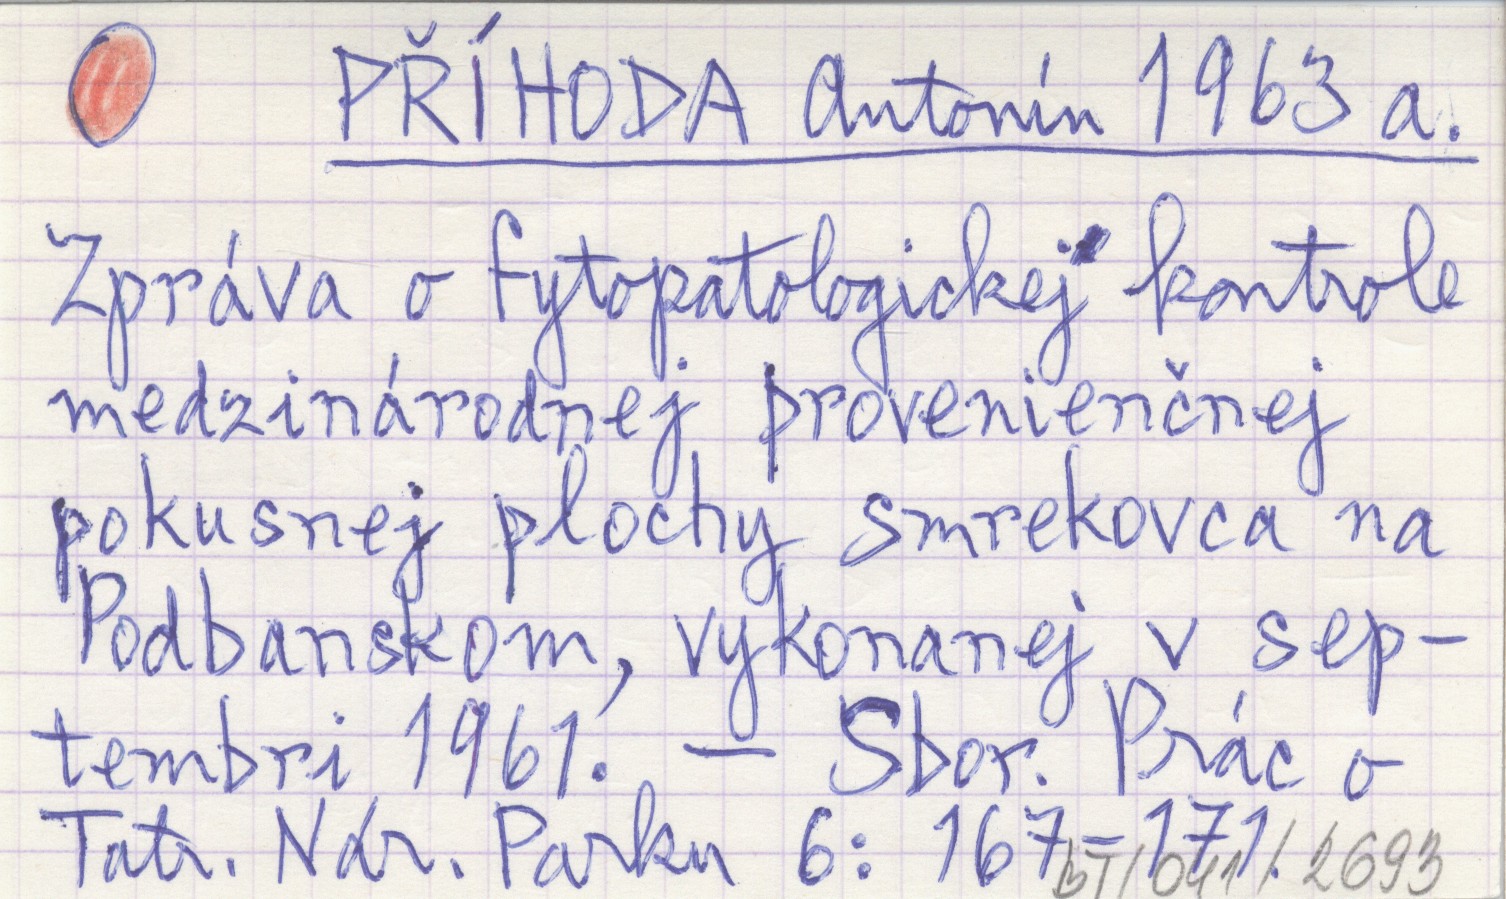 PŘÍHODA Antonín 1963 a.
Zpráva o fytopatologickej kontrole
medzinárodnej provenienčnej
pokusnej plochy smrekovca na
Podbanskom, vykonanej v sep-
tembri 1961. — Sbor. Prác o
Tatr. Nár. Parku 6: 167-171.
BT/041/2693